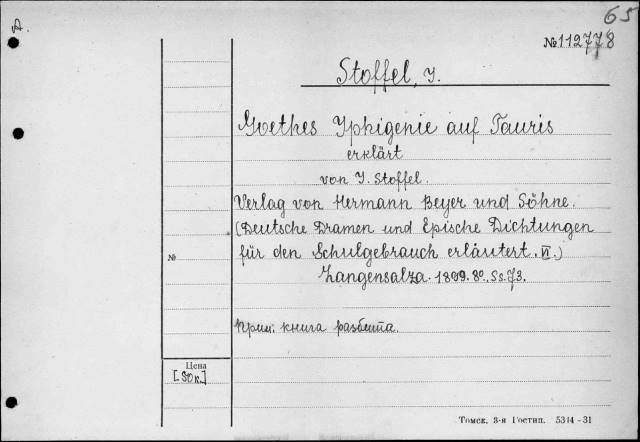 65
A.
№112778
Stoffel, J.
Goethes Iphigenie auf Tauris
erklärt
von J. Stoffel.
Verlag von Hermann Beyer und Söhne.
(Deutsche Dramen und Epische Dichtungen
für den Schulgebrauch erläutert. VI.)
№
Langensalza. 1899. 8º. Ss. 73.
Прим. книга разбита.
Цена
[50 к.]
Томск. 3-я Гостип. 5314-31